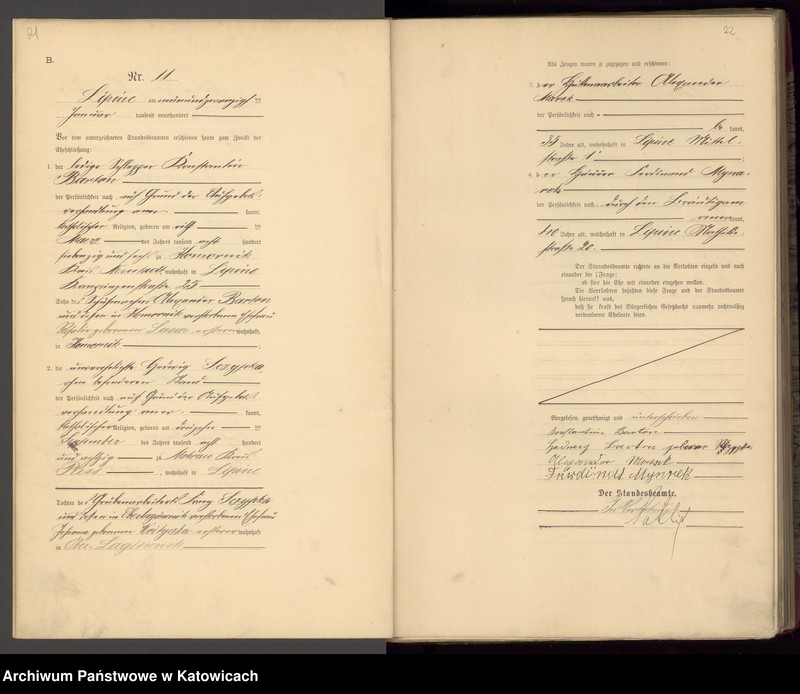 21
B.
Nr. 11
Lipine am neunundzwanzigsten
Januar tausend neunhundert
Vor dem unterzeichneten Standesbeamten erschienen heute zum Zweck der
Eheschließung:
1. der ledige Schlepper Konstantin
Barton
der Persönlichkeit nach auf Grund der Aufgebots-
verhandlung aner- kannt,
katholischer Religion, geboren am elf ten
März des Jahres tausend acht hundert
siebenzig und sechs zu Komornik
Kreis wohnhaft in Lipine
Kronprinzenstraße 23
Sohn des Alexander Barton
und dessen in Komornik verstorbene Ehefrau
geborenen wohnhaft
in Komornik ;
2. die unverehelichte Hedwig Sczypka
ohne besonderen Stand
der Persönlichkeit nach auf Grund der Aufgebots-
verhandlung aner- kannt,
katholischer Religion, geboren am ten
September des Jahres tausend acht hundert
und achtzig zu Kreis
Pless , wohnhaft in Lipine
Tochter des Grubenarbeiters Sczypka
und dessen in verstorbene Ehefrau
Johanna geborenen wohnhaft
in Lagiewnik
22
Als Zeugen waren zugezogen und erschienen:
3. der Hüttenarbeiter Alexander
der Persönlichkeit nach
be kannt,
35 Jahre alt, wohnhaft in Lipine Mittel-
straße 1 ;
4. der Häuer Ferdinand Myna-
rek
der Persönlichkeit nach durch den
aner kannt,
40 Jahre alt, wohnhaft in Lipine
straße 20.
Der Standesbeamte richtete an die Verlobten einzeln und nach
einander die Frage:
ob sie die Ehe mit einander eingehen wollen.
Die Verlobten bejahten diese Frage und der Standesbeamte
sprach hierauf aus,
daß sie kraft des Bürgerlichen Gesetzbuchs nunmehr rechtmäßig
verbundene Eheleute seien.
Vorgelesen, genehmigt und unterschrieben
Konstantin Barton
Hedwig Barton geborene Sczypka
Alexander
Ferdinand Mynrek
Der Standesbeamte.
Archiwum Państwowe w Katowicach